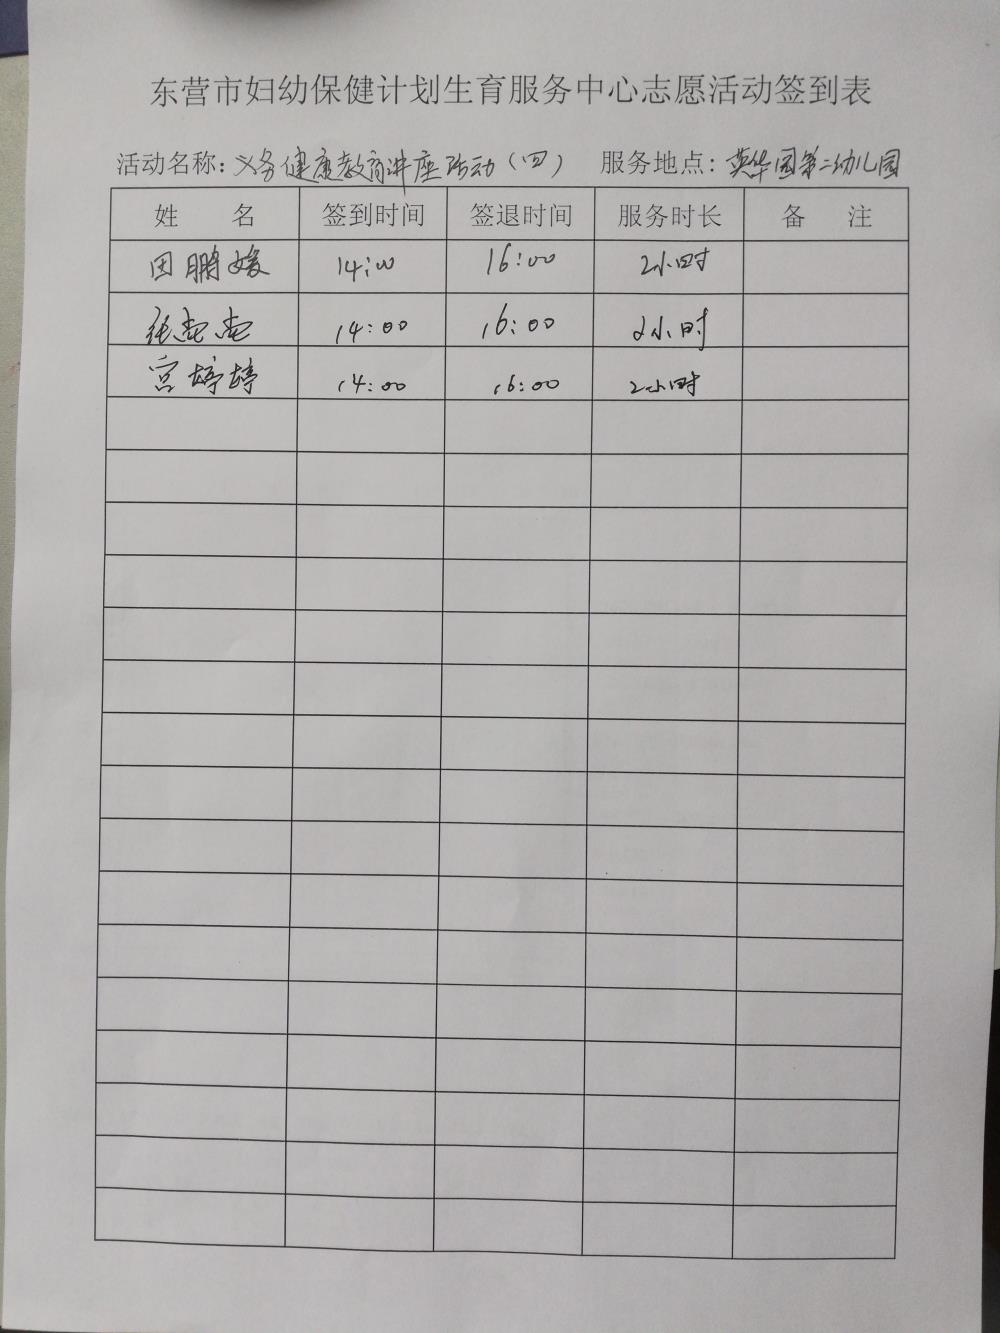 东营市妇幼保健计划生育服务中心志愿活动签到表
活动名称：义务健康教育讲座活动（四） 服务地点：英华园第二幼儿园
姓 名 签到时间 签退时间 服务时长 备 注
田鹏媛 14:00 16:00 2小时
张 14:00 16:00 2小时
宫婷婷 14:00 16:00 2小时